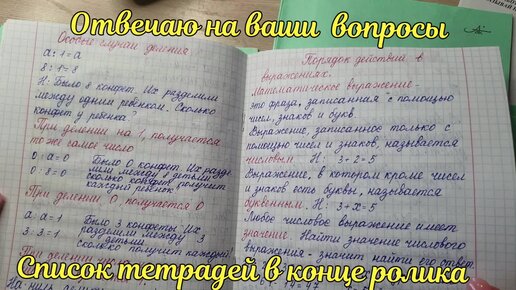 Отвечаю на ваши вопросы
Особые случаи деления
а : 1 = а
8 : 1 = 8
Н: Было 8 конфет. Их разделили
между одним ребенком. Сколько
конфет у ребенка?
При делении на 1, получается
то же самое число
0 : а = 0 Было 0 конфет. Их разде
0 : 8 = 0 лили между 8 детьми
сколько конфет получит
каждый ребенок?
При делении 0, получается 0
а : а = 1 Было 3 конфеты. Их
3 : 3 = 1 разделили между 3
детьми.
сколько получит каждый
Порядок действий в
выражениях.
Математическое выражение -
это фраза, записанная с помощью
чисел, знаков и букв
Выражение, записанное только с
помощью чисел и знаков, называется
числовым. Н: 3+2-5
Выражение, в котором кроме чисел
и знаков есть буквы, называется
буквенным. Н: 3+х-5
Любое числовое выражение имеет
значение. Найти значение числового
выражения - значит найти его ответ
Список тетрадей в конце ролика